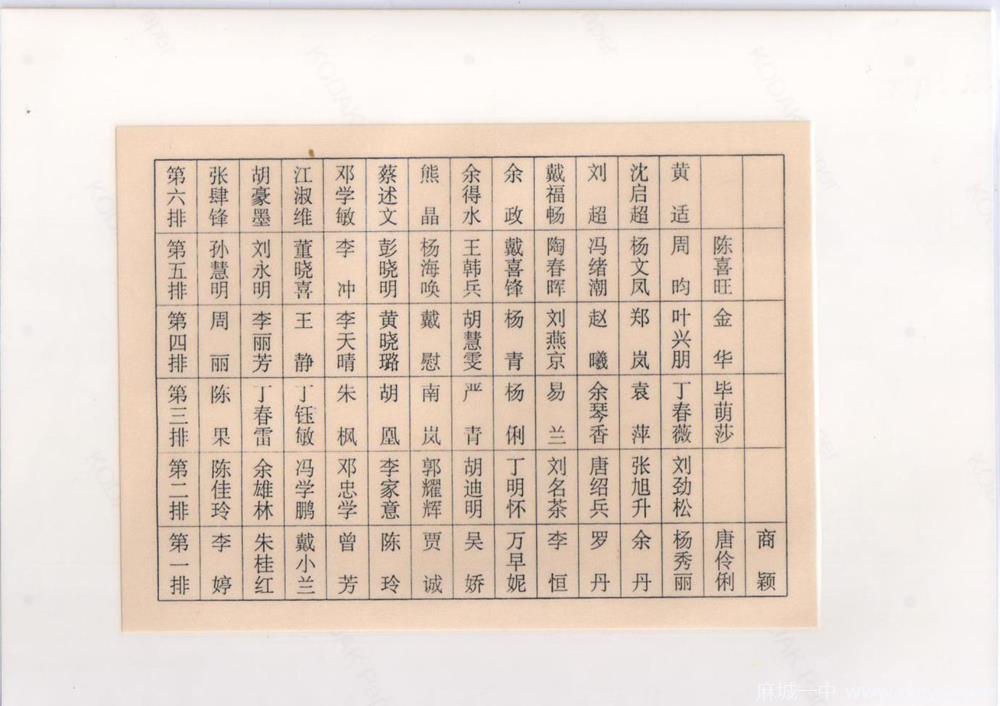 第六排 张肆锋 胡豪墨 江淑维 邓学敏 蔡述文 熊晶 余得水 余政 戴福畅 刘超 沈启超 黄适
第五排 孙慧明 刘永明 董晓喜 李冲 彭晓明 杨海唤 王韩兵 戴喜锋 陶春晖 冯绪潮 杨文凤 周昀 陈喜旺
第四排 周丽 李丽芳 王静 李天晴 黄晓璐 戴慰 胡慧雯 杨青 刘燕京 赵曦 郑岚 叶兴朋 金华
第三排 陈果 丁春雷 丁钰敏 朱枫 胡凰 南岚 严青 杨俐 易兰 余琴香 袁萍 丁春薇 毕萌莎
第二排 陈佳玲 余雄林 冯学鹏 邓忠学 李家意 郭耀辉 胡迪明 丁明怀 刘名茶 唐绍兵 张旭升 刘劲松
第一排 李婷 朱桂红 戴小兰 曾芳 陈玲 贾诚 吴娇 万早妮 李恒 罗丹 余丹 杨秀丽 唐伶俐 商颖
麻城一中